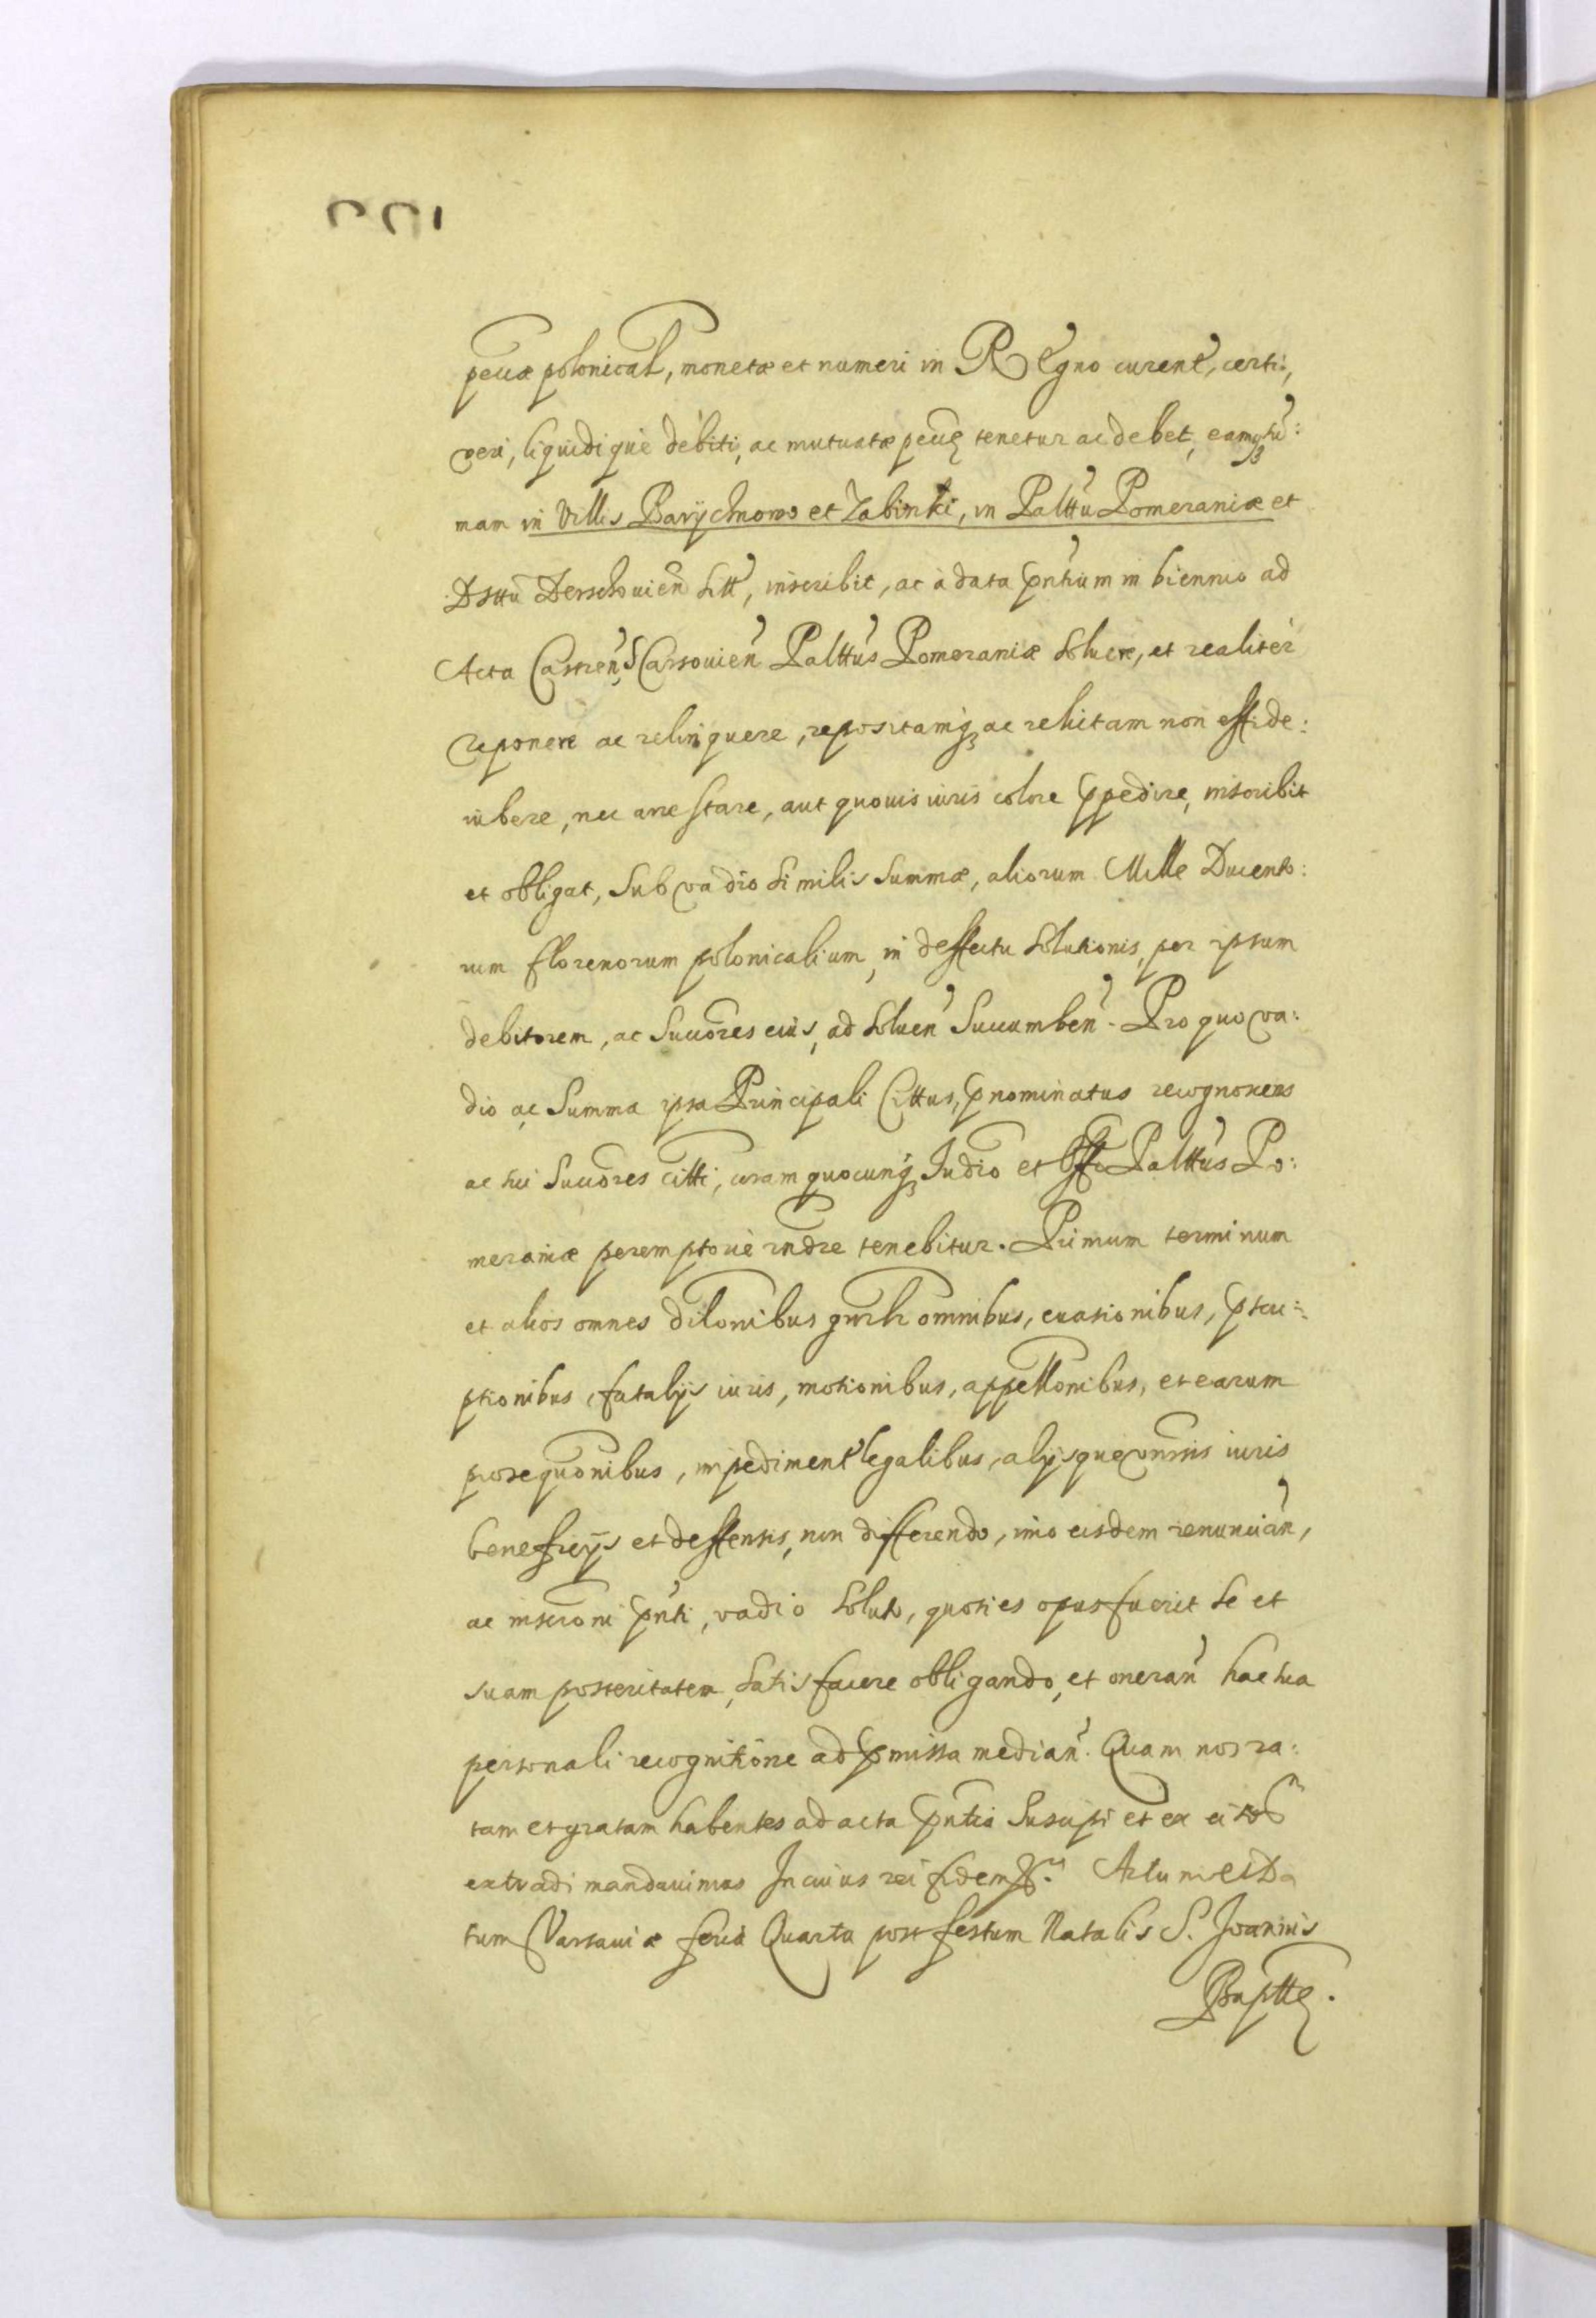 pecuæ polonical, monetæ et numeri in Regno curent, certi,
veri, liquidique debiti, ac mutuatæ pecuę tenetur ac debet, eamqꝫ su:
mam in Villis Barÿchnowo et Zabinki, in Palttu Pomeraniæ et
Dsttu Derschouien sitt, inscribit, ac à data pntium in biennio ad
Acta Castren, Scarsouien Palttus Pomeraniæ soluere, et realiter
reponere ac relinquere, repositamqꝫ ac relictam non effide:
iubere, nec arrestare, aut quouis iuris colore ppedire, inscribit
et obligat, sub vadio similis summæ, aliorum Mille Ducento:
rum florenorum polonicalium, in deffectu solutionis, per ipsum
debitorem, ac succores eius, ad soluen succumben. Pro quo va:
dio ac summa ipsa Principali Cittus, pnominatus recognoscens
ac sui succores citti, coram quocunqꝫ Judio et Offo Palttus Po:
meraniæ peremptorie rndre tenebitur. Primum terminum
et alios omnes dilonibus gnrlr omnibus, euasionibus, pscri:
ptionibus, fatalijs iuris, motionibus, appellonibus, et earum
prosequonibus, impediment legalibus, alijsque omnis iuris
beneficijs et deffensis, non differendo, imo eisdem renuncian,
ac inscroni pnti, vadio soluto, quoties opus fuerit se et
suam posteritatem, satisfacere obligando, et oneran hac sua
personali recognitione ad pmissa median. Quam nos ra:
tam et gratam habentes ad acta pntia suscipi et ex eis
extradi mandauimus In cuius rei fidem Actum et Da
tum Varsauiæ feria Quarta post festum Natalis S. Joannis
Bapttę.